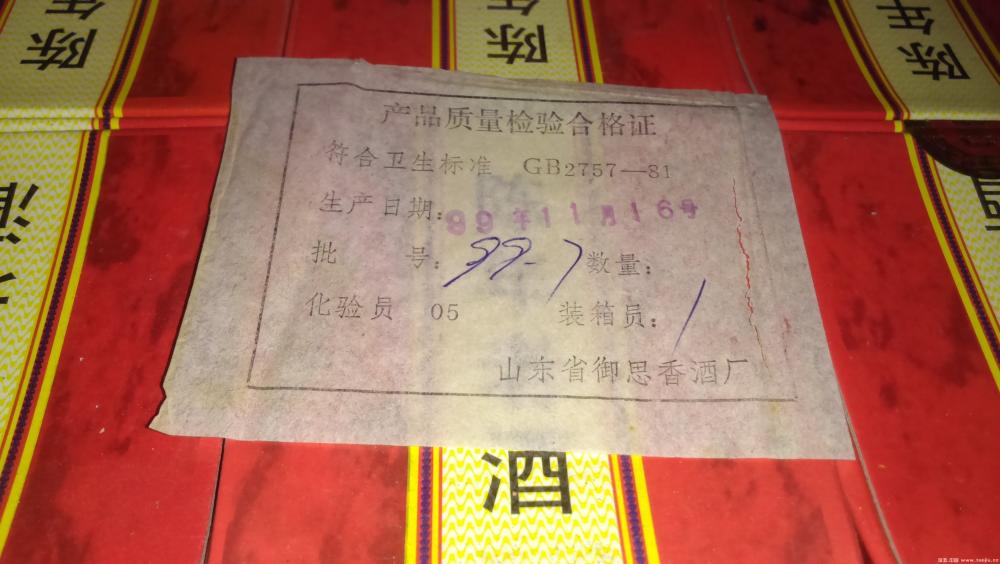 陈年
陈年
陈年
产品质量检验合格证
符合卫生标准 GB2757—81
生产日期: 99年11月16号
批 号: 99-7 数量:
化验员 05 装箱员: 1
山东省御思香酒厂
酒
酒